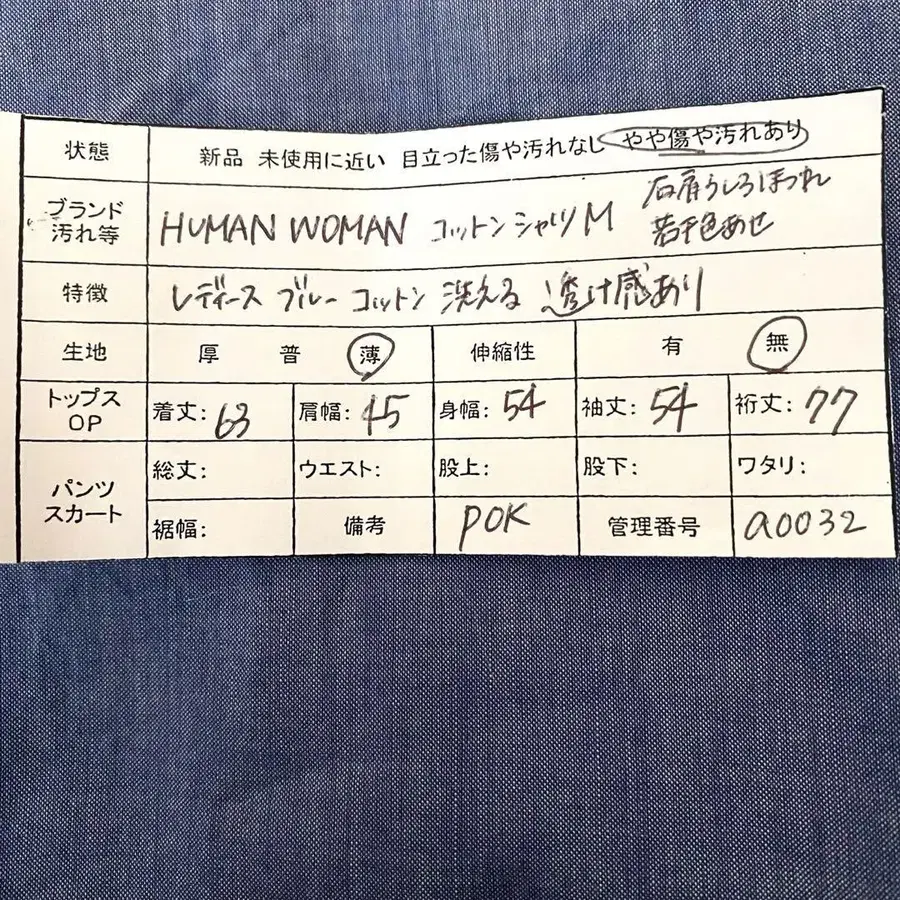 状態 新品 未使用に近い 目立った傷や汚れなし やや傷や汚れあり
ブランド 汚れ等 HUMAN WOMAN コットンシャツM 右肩うしろほつれ 若干色あせ
特徴 レディース ブルー コットン 洗える 透け感あり
生地 厚 普 薄 伸縮性 有 無
トップス OP 着丈: 63 肩幅: 45 身幅: 54 袖丈: 54 裄丈: 77
パンツ スカート 総丈: ウエスト: 股上: 股下: ワタリ:
裾幅: 備考 POK 管理番号 a0032